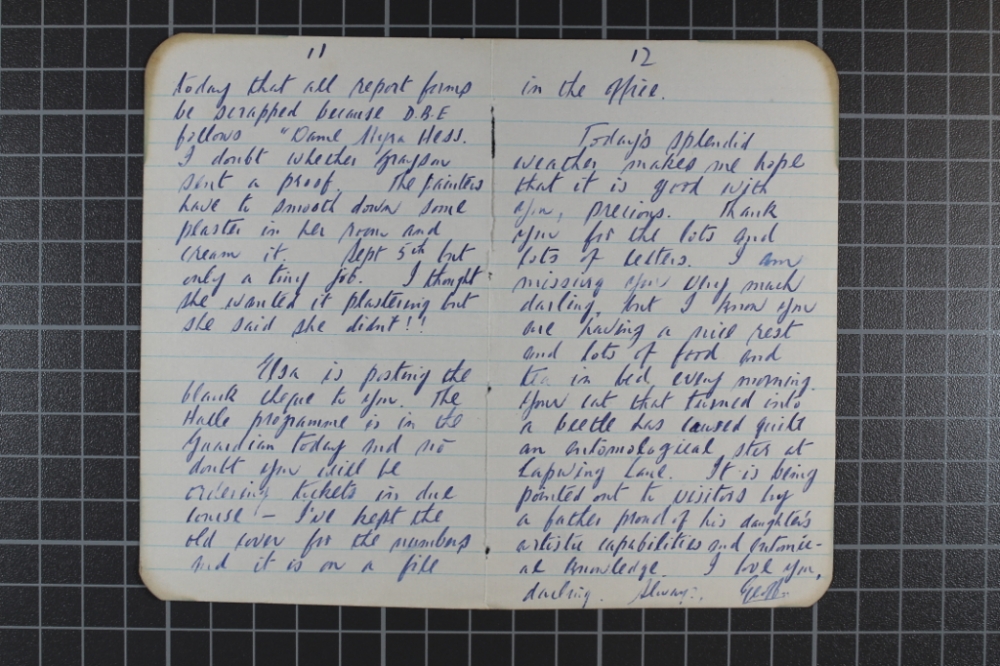 11
today that all report forms
be scrapped because D.B.E
follows "Dame Myra Hess.
I doubt whether Grayson
sent a proof. The painters
have to smooth down some
plaster in her room and
cream it. Sept 5th but
only a tiny job. I thought
she wanted it plastering but
she said she didn't!!
Elsa is posting the
blank cheque to you. The
Halle programme is in the
Guardian today and no
doubt you will be
ordering tickets in due
course – I've kept the
old cover for the numbers
and it is on a file
12
in the office.
Today's splendid
weather makes me hope
that it is good with
you, precious. Thank
you for the lots and
lots of letters. I am
missing you very much
darling, but I know you
are having a nice rest
and lots of food and
tea in bed every morning.
Your cat that turned into
a beetle has caused quite
an entomological stir at
Lapwing Lane. It is being
pointed out to visitors by
a father proud of his daughter's
artistic capabilities and entomic-
al knowledge. I love you,
darling. Always,